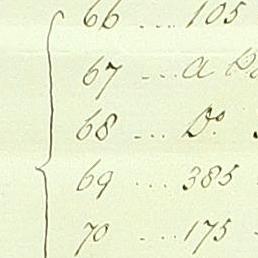 66 ... 105
67 ... a
68 ... Do
69 ... 385
70 ... 175